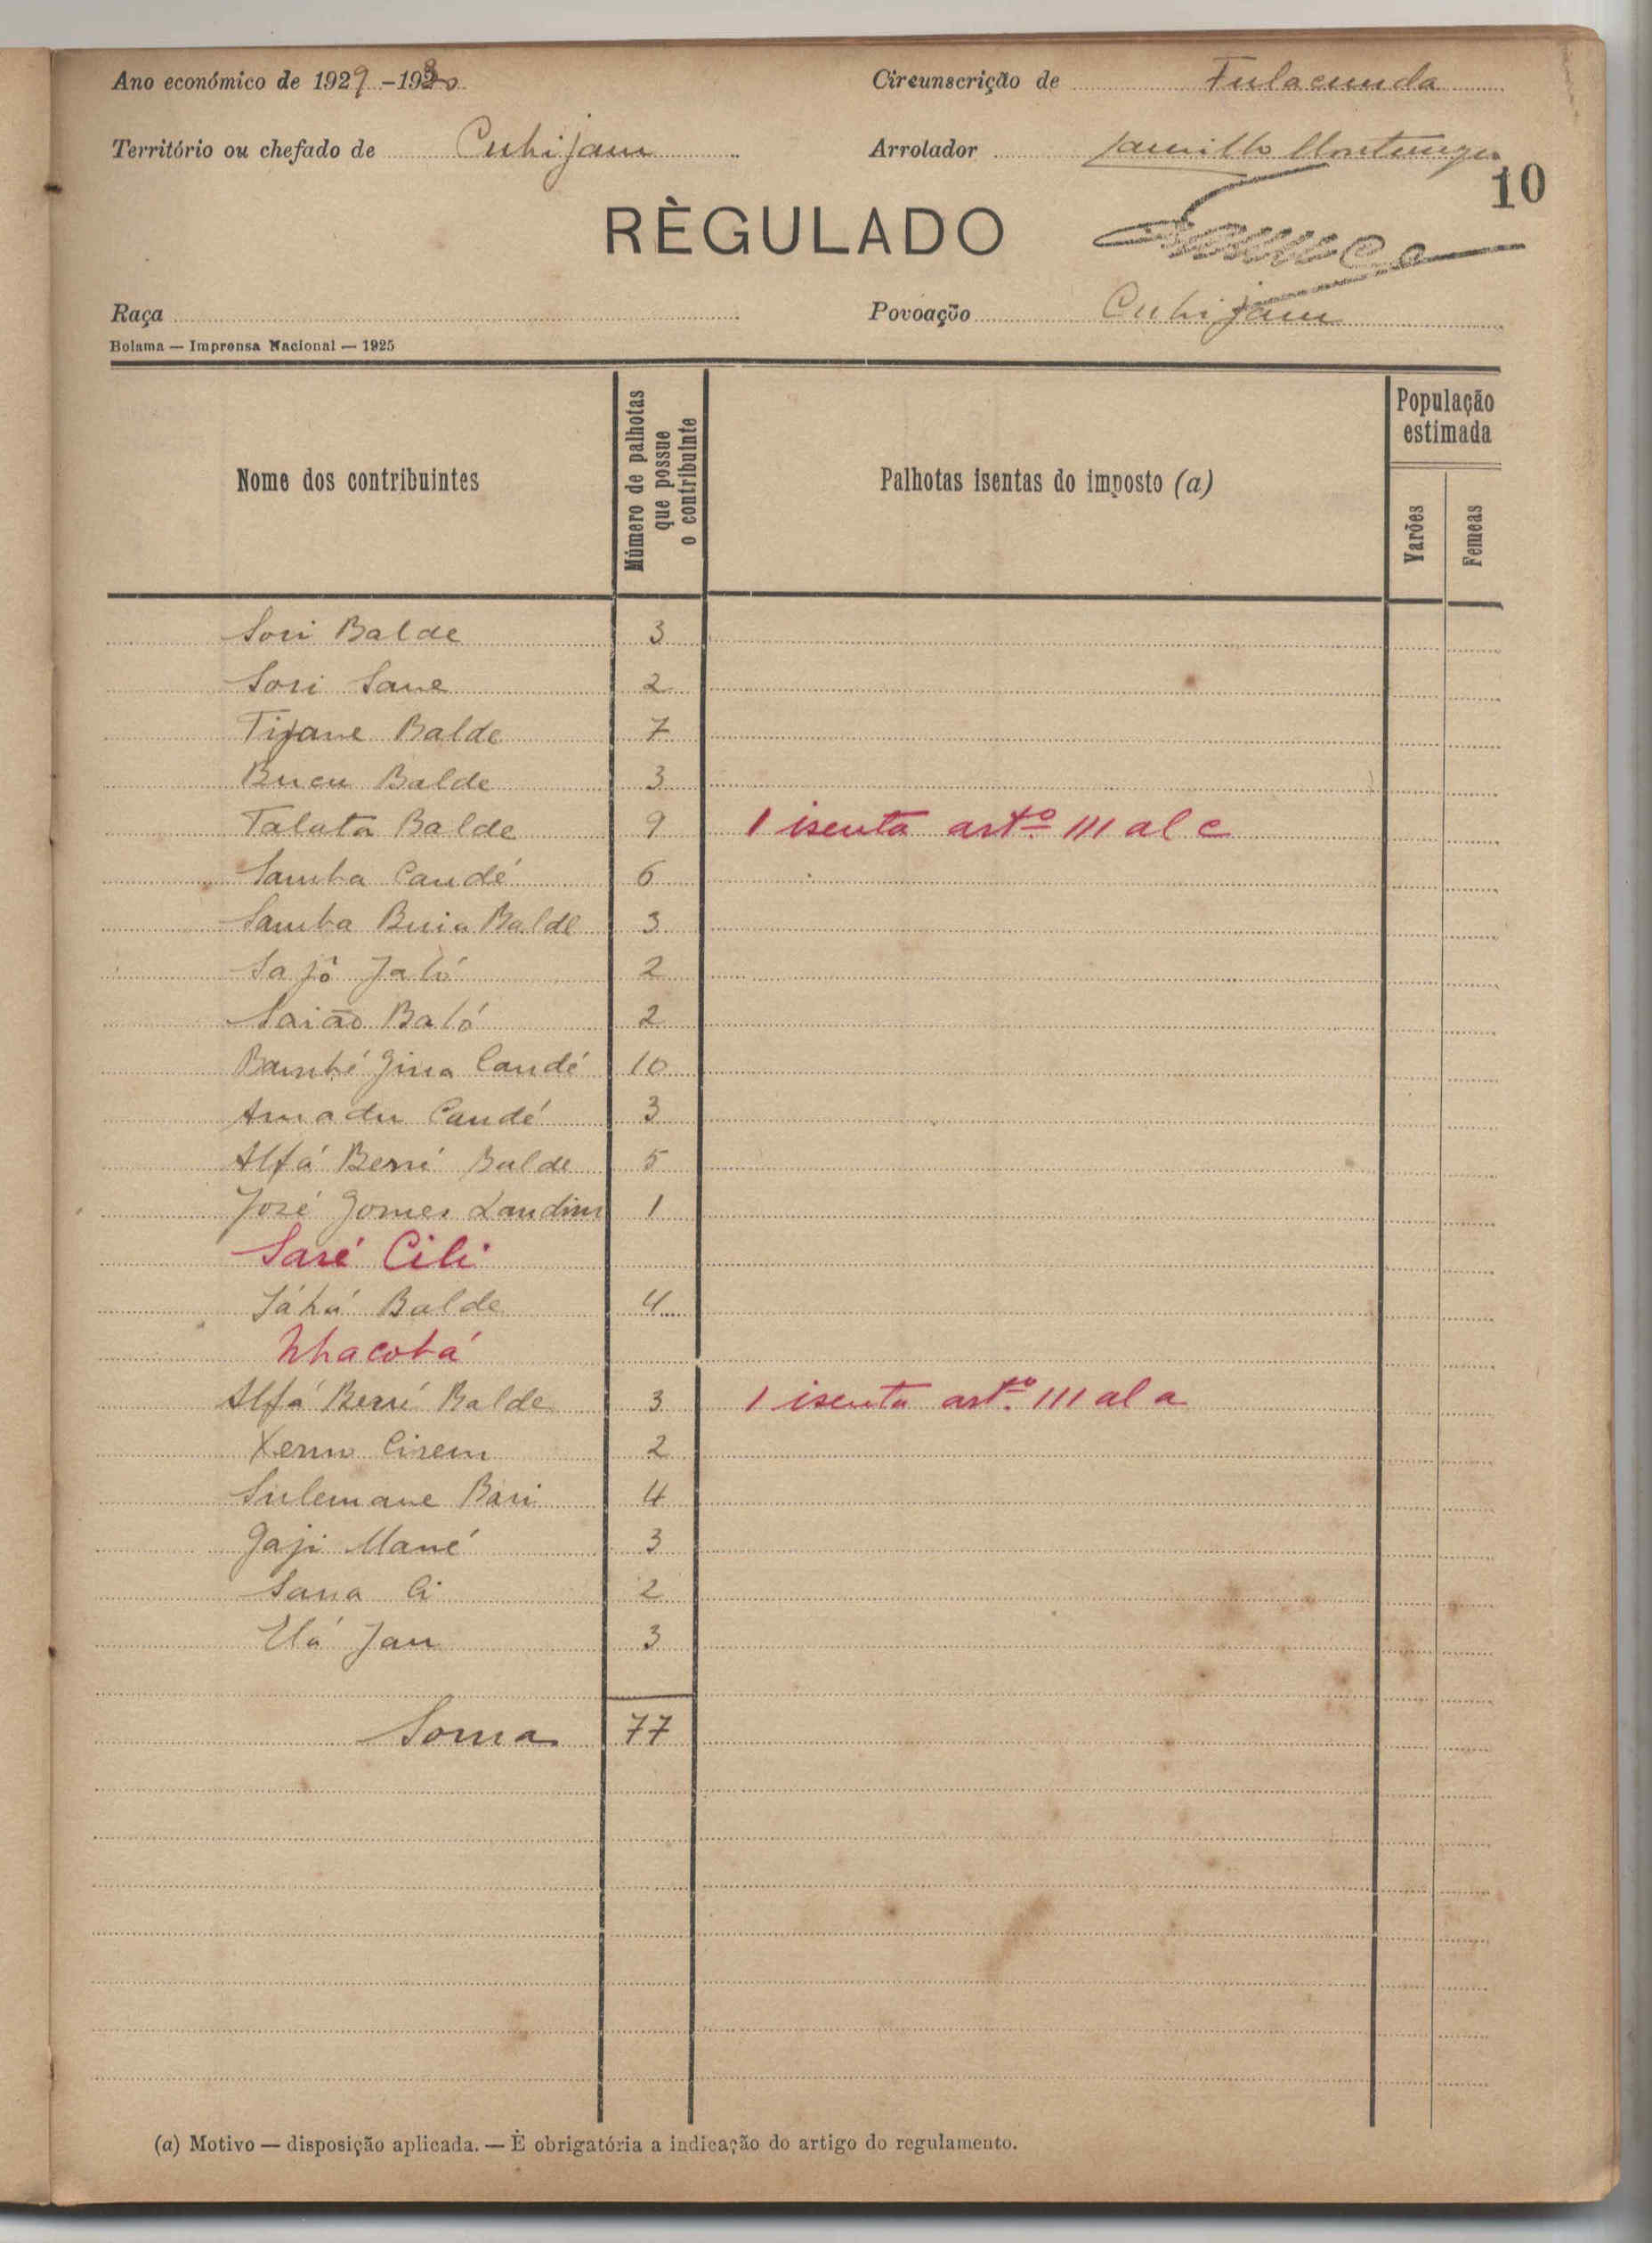 Ano económico de 1929-1930
Circunscrição de Fulacunda
Território ou chefado de Cuhijam
Arrolador Camillo Montenegro
10
RÈGULADO
Raça
Povoação Cuhijam
Bolama — Imprensa Nacional — 1925
Nome dos contribuintes
Número de palhotas que possue o contribuinte
Palhotas isentas do imposto (a)
População estimada
Varões
Femeas
Sori Balde 3
Sori Sane 2
Tijane Balde 7
Bucu Balde 3
Talata Balde 9 1 isenta artº III al c
Samba Candé 6
Samba Buia Balde 3
Sajô Jaló 2
Saião Baló 2
Bambé Gina Candé 10
Amadu Candé 3
Alfá Berri Balde 5
José Gomes Landim 1
Saré Cili
Jáhá Balde 4
Nhacobá
Alfá Berré Balde 3 1 isenta artº. III al a
Xerno Cirem 2
Sulemane Bari 4
Gaji Mané 3
Sana Ci 2
Elá Jau 3
Soma 77
(a) Motivo — disposição aplicada. — É obrigatória a indicação do artigo do regulamento.